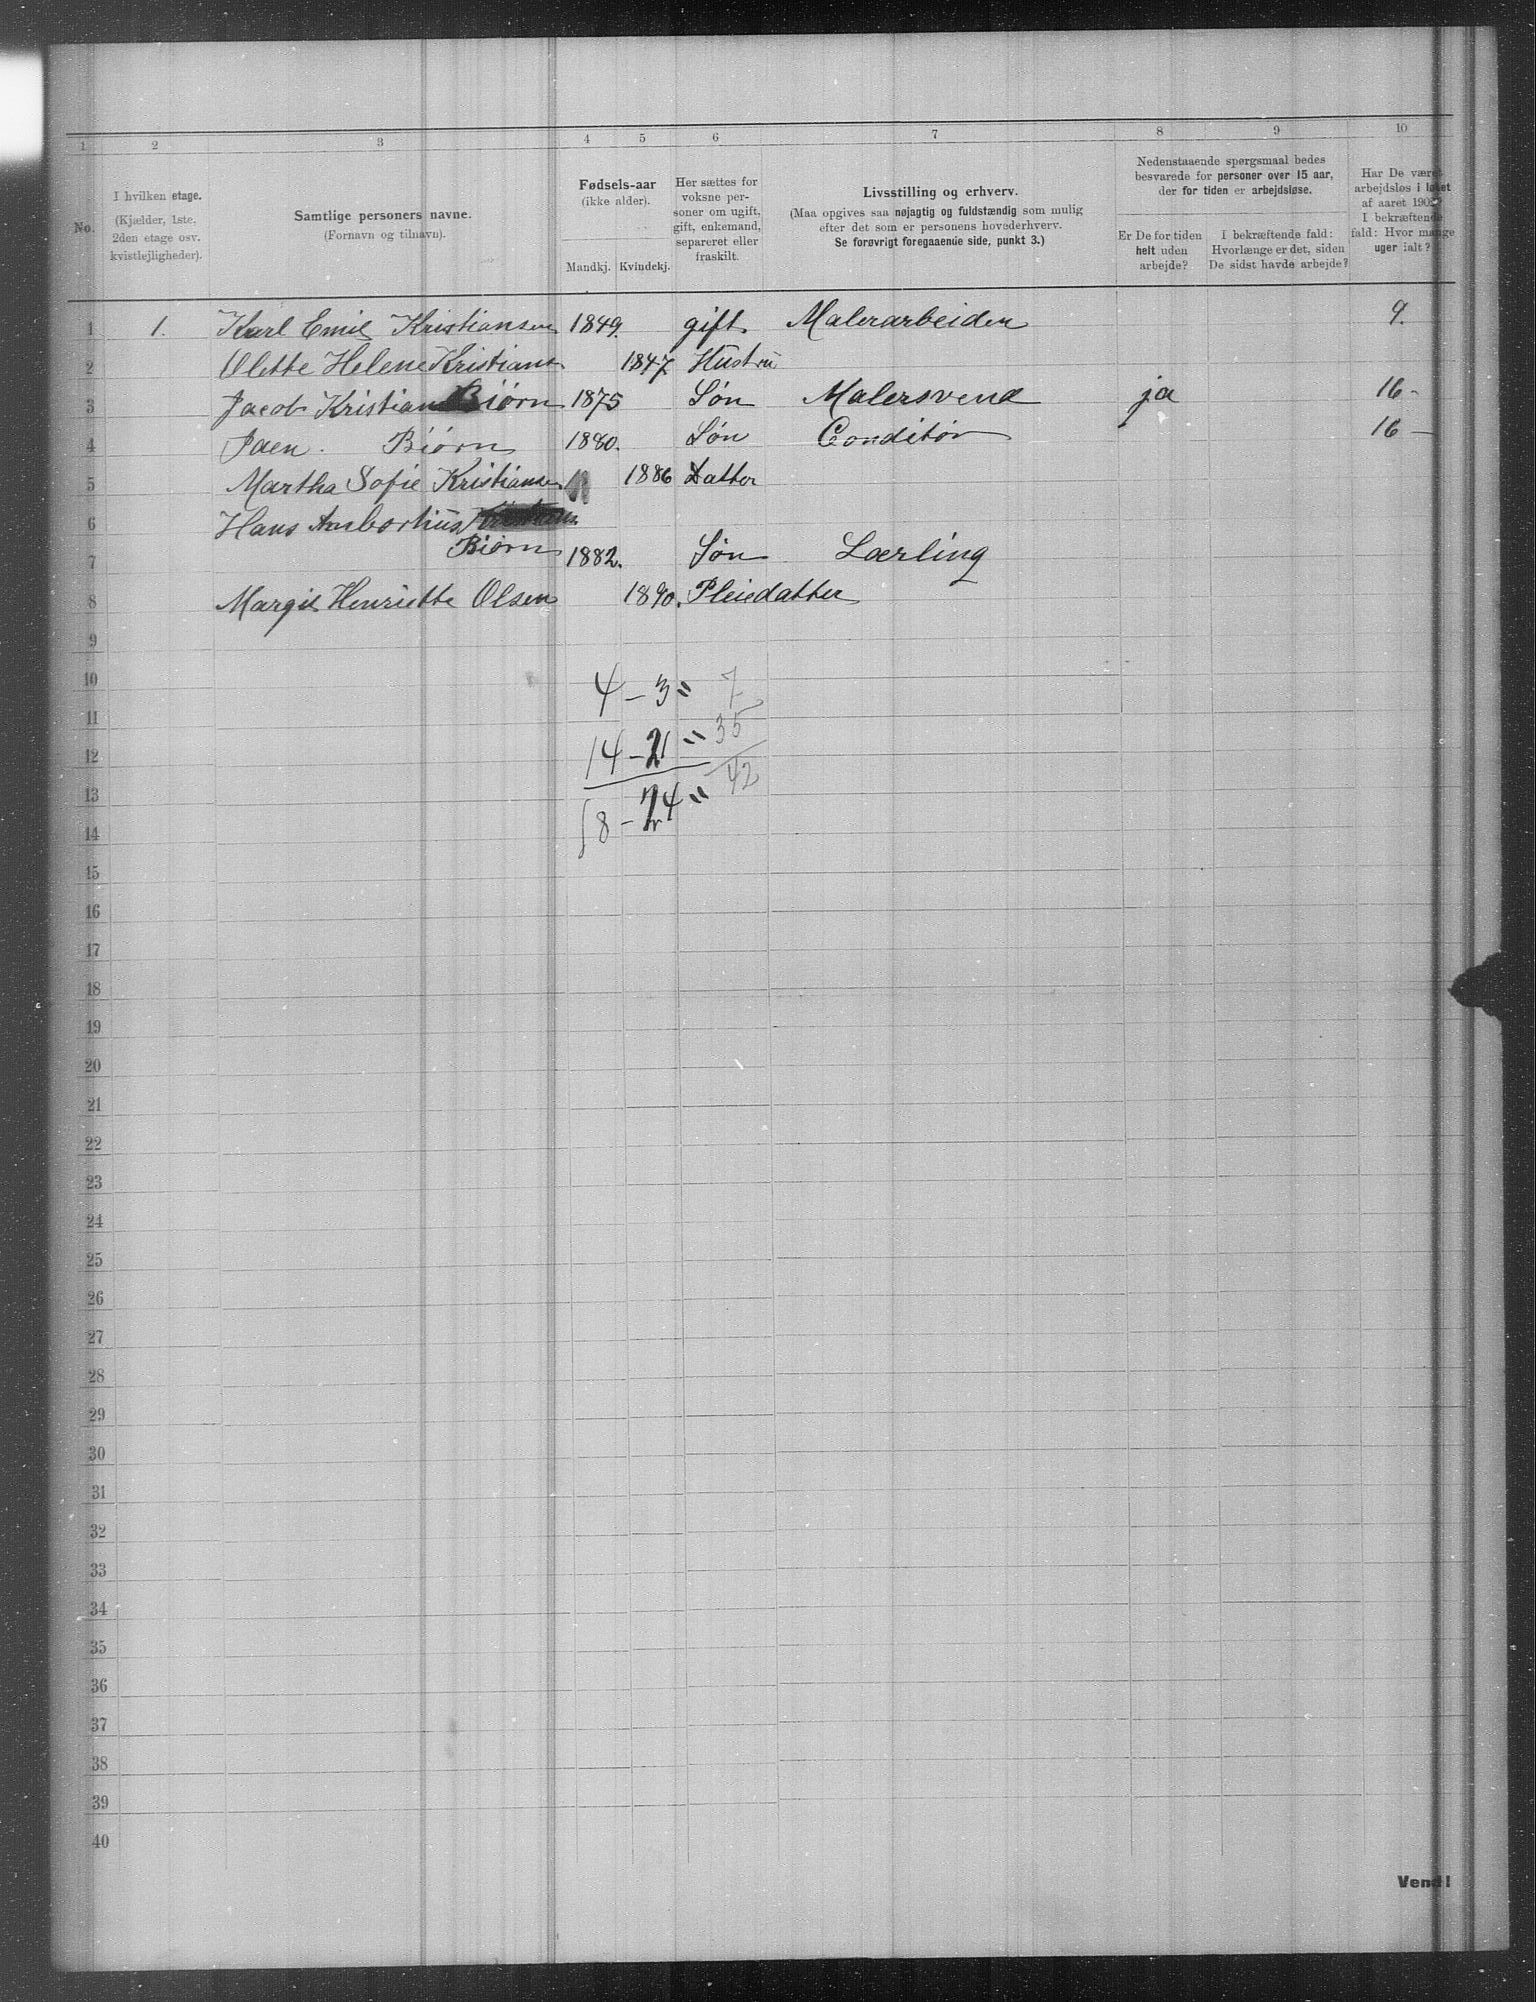 1 2 3 4 5 6 7 8 9 10
No.
I hvilken etage.
(Kjælder, 1ste.
2den etage osv.
kvistlejligheder).
Samtlige personers navne.
(Fornavn og tilnavn).
Fødsels-aar
(ikke alder).
Mandkj. Kvindekj.
Her sættes for
voksne per-
soner om ugift,
gift, enkemand,
separeret eller
fraskilt.
Livsstilling og erhverv.
(Maa opgives saa nøjagtig og fuldstændig som mulig
efter det som er personens hovederhverv.
Se forøvrigt foregaaende side, punkt 3.)
Nedenstaaende spørgsmaal bedes
besvarede for personer over 15 aar,
der for tiden er arbejdsløse.
Er De for tiden
helt uden
arbejde?
I bekræftende fald:
Hvorlænge er det, siden
De sidst havde arbejde?
Har De været
arbejdsløs i løbet
af aaret 190
I bekræftende
fald: Hvor mange
uger ialt?
1 1. Karl Emil Kristiansen 1849. gift. Malerarbeider 9.
2 Olette Helene Kristians 1847 Hustru
3 Jacob Kristian Biørn 1875 Søn Malersvend ja 16 -
4 Biørn 1880. Søn Conditor 16 -
5 Martha Sofie Kristiansen 1886 Datter
6 Hans
7 Biørn 1882. Søn Lærling
8 Margit Henriette Olsen 1890. Pleiedatter
9
10 4 - 3 = 7
11
12 14 - 21 = 35
13 18 - 24 = 42
14
15
16
17
18
19
20
21
22
23
24
25
26
27
28
29
30
31
32
33
34
35
36
37
38
39
40
Vend!